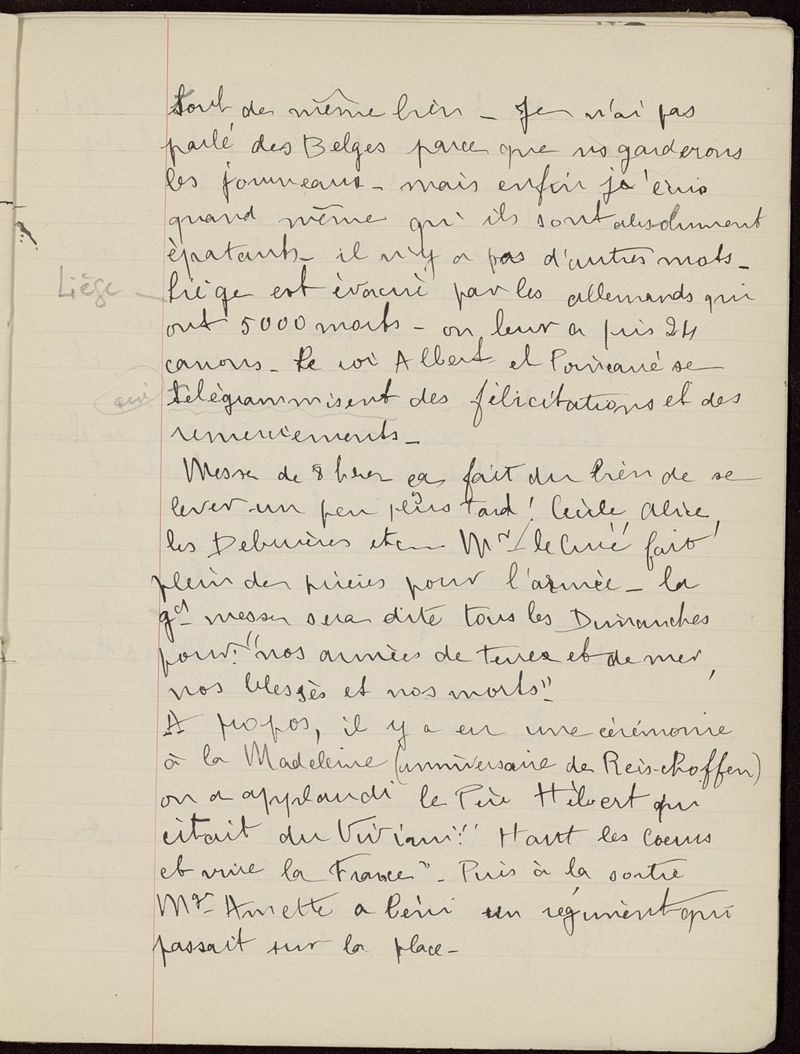 tout de même bien - Je n'ai pas
parlé des Belges parce que ns garderons
les journeaux - mais enfin je l'écris
quand même qu'ils sont absolument
épatants - il n'y a pas d'autres mots -
Liège - Liège est évacué par les allemands qui
ont 5000 morts - on leur a pris 24
canons - Le roi Albert et Poincaré se
(qui) télégrammisent des félicitations et des
remerciements -
Messe de 8 hres ça fait du bien de se
lever un peu plus tard ! Cécile, Alice,
les Debrières etc Mr le Curé fait
plein de prières pour l'armée - la
gd messe sera dite tous les Dimanches
pour : "nos armées de terre et de mer,
nos blessés et nos morts"
A propos, il y a eu une cérémonie
à la Madeleine (anniversaire de Reischoffen)
on a applaudi le Père Hébert qui
citait du Viviani : "Haut les coeurs
et vive la France". Puis à la sortie
Mgr Amette a béni un régiment qui
passait sur la place -